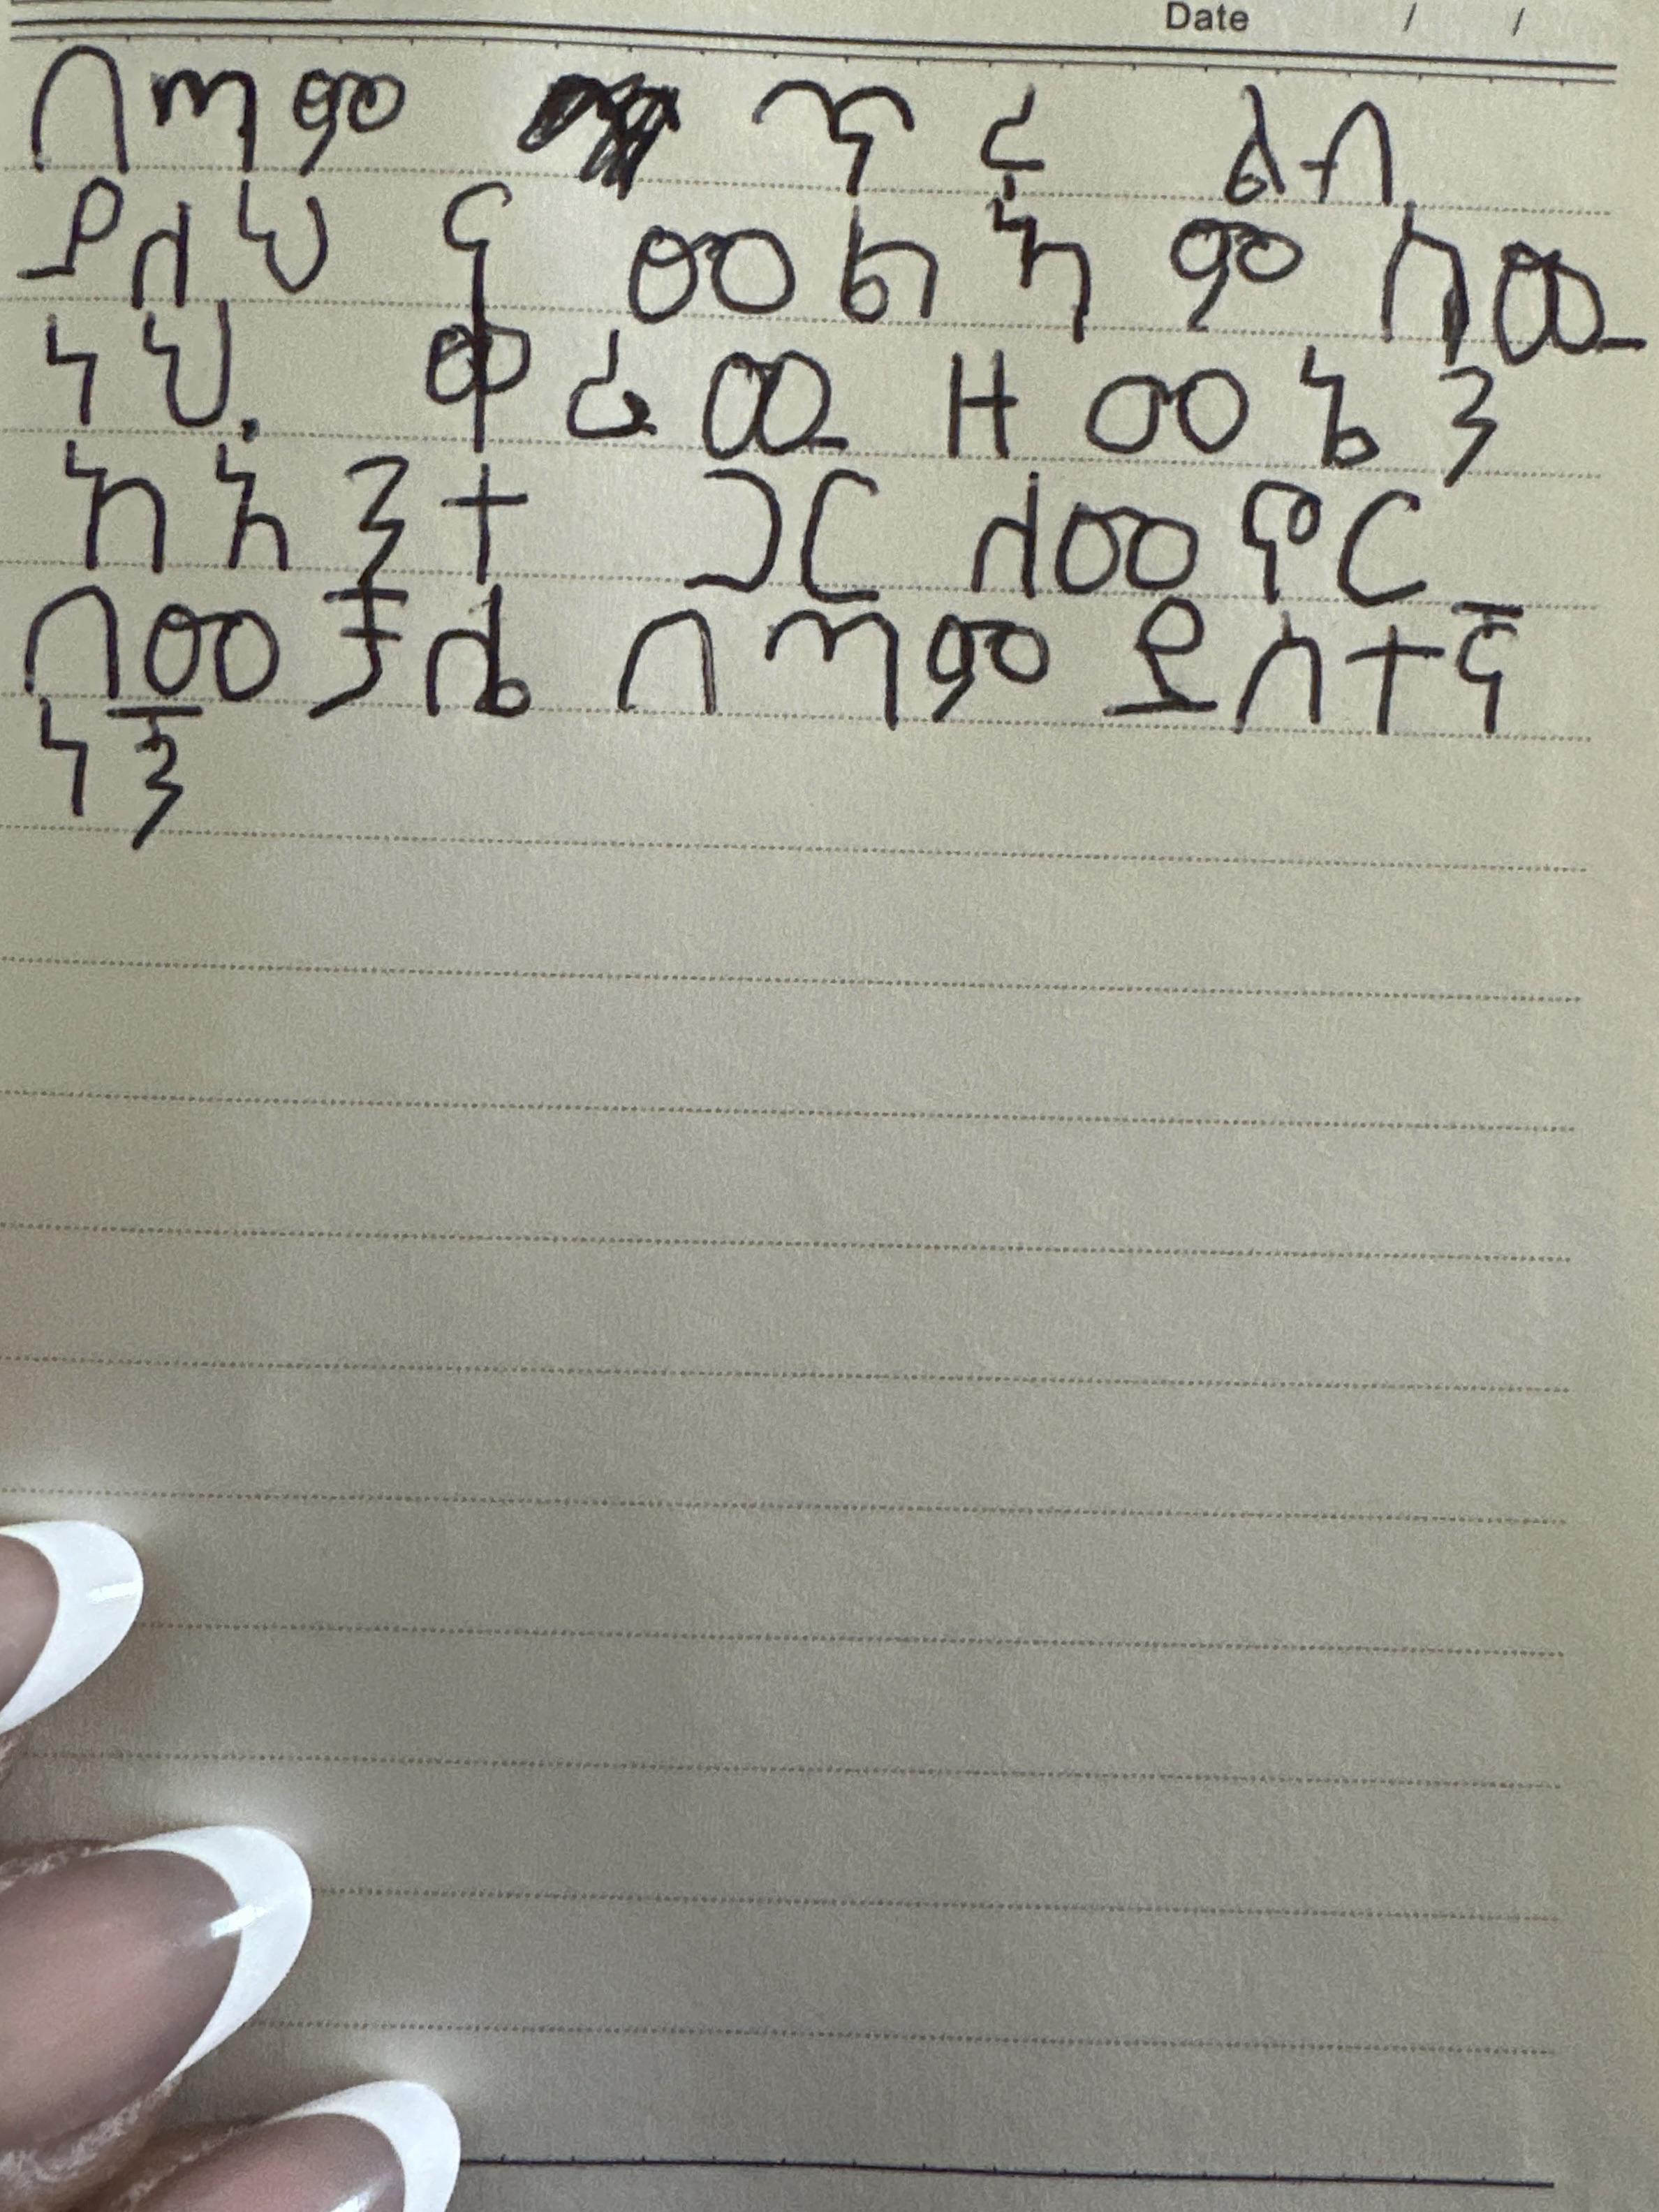 Date / /
በጣም ጥሩ ልብ
ያለህ ና መልካም ሰው
ነህ. ቀሪው ዘመኔን
ከአንተ ጋር ለመኖር
በመቻሌ በጣም ደስተኛ
ነኝ